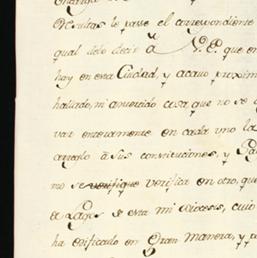 resultas le passe el correspondiente
qual debo decir a V.E. que en
hay en esta Ciudad, y acavo proxim
hallado, mi amvecido casa, que no se o
var enteramente en cada uno la
arreglo a sus constituciones, y
mo se verifique verificar en otro, que
se esta mi Diocesis, cuio
ha edificado en Gran Manera, y